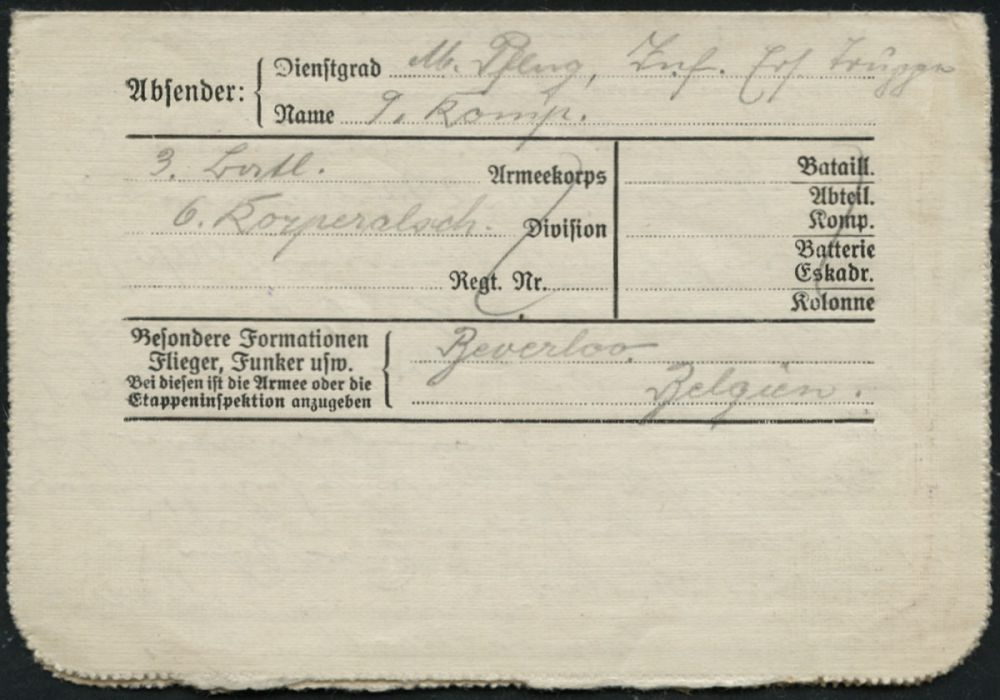 Absender:
Dienstgrad M. Pflug, Inf. Ers Truppe
Name 9. Komp.
3. Batl. Armeekorps
6. Korperalsch. Division
Regt. Nr.
Bataill.
Abteil.
Komp.
Batterie
Eskadr.
Kolonne
Besondere Formationen
Flieger, Funker usw.
Bei diesen ist die Armee oder die
Etappeninspektion anzugeben
Beverloo
Belgien.